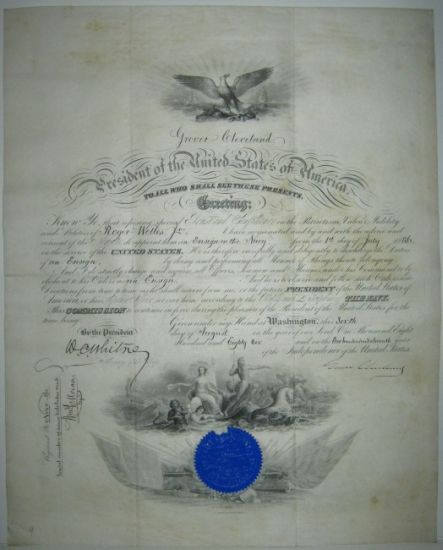 Grover Cleveland
President of the United States of America.
TO ALL WHO SHALL SEE THESE PRESENTS,
Greeting:
Know Ye, that reposing special Trust and Confidence in the Patriotism, Valor, Fidelity
and Abilities of Roger Welles Jr. I have nominated and by and with the advice and
consent of the Senate do appoint him an Ensign in the Navy from the 1st day of July 1886
in the service of the UNITED STATES. He is therefore carefully and diligently to discharge the duties
of an Ensign by doing and performing all Manner of Things thereto belonging.
And I do strictly charge and require all Officers, Seamen and Marines under his Command to be
obedient to his Orders as an Ensign. And he is to observe and follow such Orders and
Directions from time to time as he shall receive from me, or the future PRESIDENT of the United States of
America, or his Superior Officer set over him, according to the Rules and Discipline of THE NAVY.
This COMMISSION to continue in force during the pleasure of the President of the United States for the
time being.
Given under my Hand at Washington, this Sixth
day of August in the year of our Lord One Thousand Eight
Hundred and Eighty Six and in the One hundred and eleventh year
of the Independence of the United States.
By the President
W.C. Whitney
Grover Cleveland